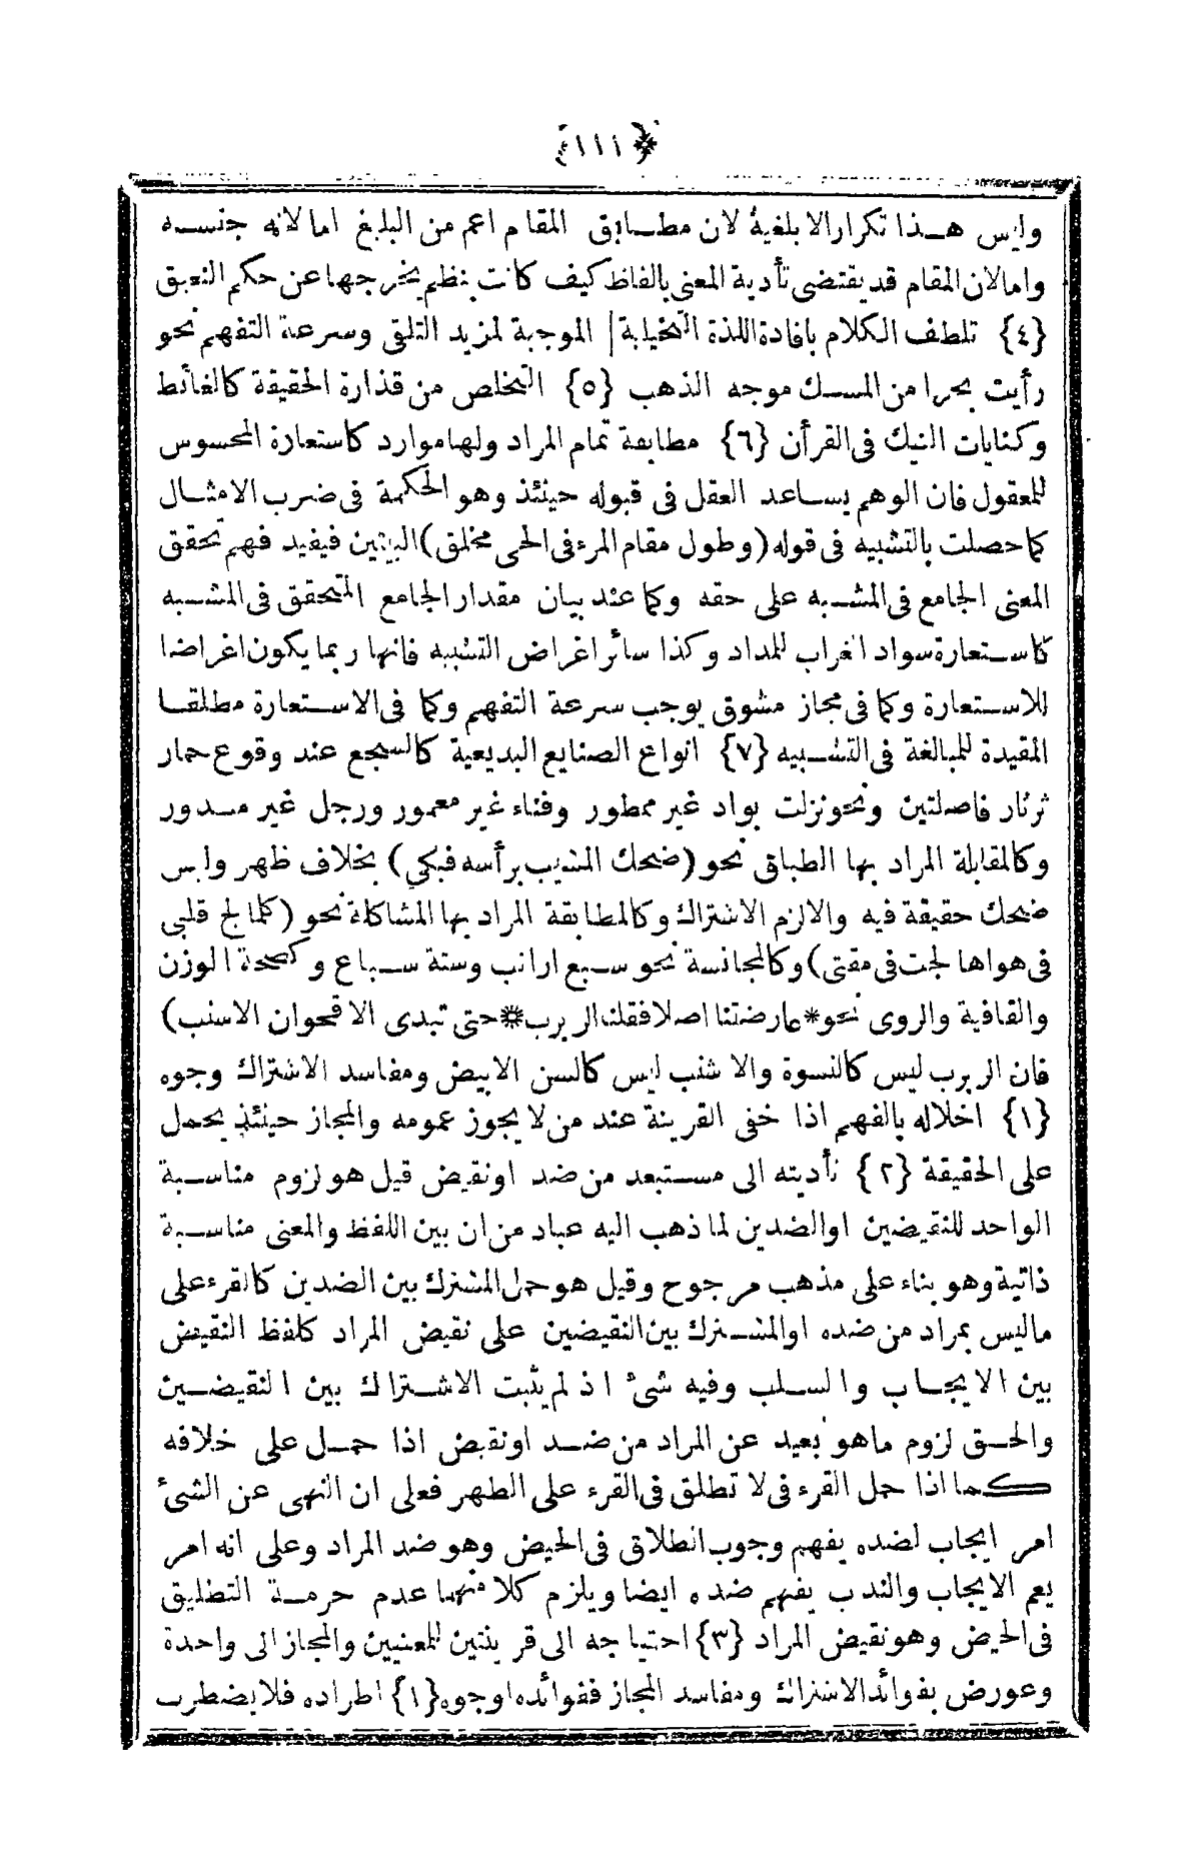 ﴿١١١﴾
وليس هذا تكرارالا بلغية لان مطابق المقام اعم من البليغ اما لانه جنسه
وامالان المقام قديقتضى تأدية المعنى بالفاظ كيف كانت بنظم يخرجها عن حكم النعيق
{٤} تلطف الكلام بافادة اللذة التخيلية الموجبة لمزيد التلقى وسرعة التفهم نحو
رأيت بحرا من المسك موجه الذهب {٥} التخلص من قذارة الحقيقة كالغائط
وكنايات النيك فى القرأن {٦} مطابقة تمام المراد ولها موارد كاستعارة المحسوس
للمعقول فان الوهم يساعد العقل فى قبوله حينئذ وهو الحكمة فى ضرب الامثال
كما حصلت بالتشبيه فى قوله (وطول مقام المرء فى الحى مخلق) البيتين فيفيد فهم تحقق
المعنى الجامع فى المشبه على حقه وكما عند بيان مقدار الجامع المتحقق فى المشبه
كاستعارة سواد الغراب للمداد وكذا سائر اغراض التشبيه فانها ربما يكون اغراضا
للاستعارة وكما فى مجاز مشوق يوجب سرعة التفهم وكما فى الاستعارة مطلقا
المقيدة للمبالغة فى التشبيه {٧} انواع الصنايع البديعية كالسجع عند وقوع حمار
ثرثار فاصلتين ونحو نزلت بواد غير ممطور وفناء غير معمور ورجل غير مسدور
وكالمقابلة المراد بها الطباق نحو (ضحك المشيب برأسه فبكى) بخلاف ظهر وليس
ضحك حقيقة فيه والا لزم الاشتراك وكالمطابقة المراد بها المشاكلة نحو (كلما لج قلبى
فى هواها لجت فى مقتى) وكالمجانسة نحو سبع ارانب وستة سباع وكصحة الوزن
والقافية والروى نحو * عارضتنا اصلا فقلنا الربرب * حتى تبدى الاقحوان الاشنب)
فان الربرب ليس كالنسوة والا شنب ليس كالسن الابيض ومفاسد الاشتراك وجوه
{١} اخلاله بالفهم اذا خفى القرينة عند من لا يجوز عمومه والمجاز حينئذ يحمل
على الحقيقة {٢} تأديته الى مستبعد من ضد اونقيض قيل هو لزوم مناسبة
الواحد للنقيضين اوالضدين لما ذهب اليه عباد من ان بين اللفظ والمعنى مناسبة
ذاتية وهو بناء على مذهب مرجوح وقيل هو حمل المشترك بين الضدين كالقرء على
ماليس بمراد من ضده اوالمشترك بين النقيضين على نقيض المراد كلفظ النقيض
بين الايجاب والسلب وفيه شئ اذ لم يثبت الاشتراك بين النقيضين
والحق لزوم ماهو بعيد عن المراد من ضد اونقيض اذا حمل على خلافه
كما اذا حمل القرء فى لا تطلق فى القرء على الطهر فعلى ان النهى عن الشئ
امر ايجاب لضده يفهم وجوب انطلاق فى الحيض وهو ضد المراد وعلى انه امر
يعم الايجاب والندب يفهم ضده ايضا ويلزم كلا منهما عدم حرمة التطليق
فى الحيض وهو نقيض المراد {٣} احتياجه الى قرينتين للمعنيين والمجاز الى واحدة
وعورض بفوائد الاشتراك ومفاسد المجاز ففوائده اوجوه {١} اطراده فلا يضطرب